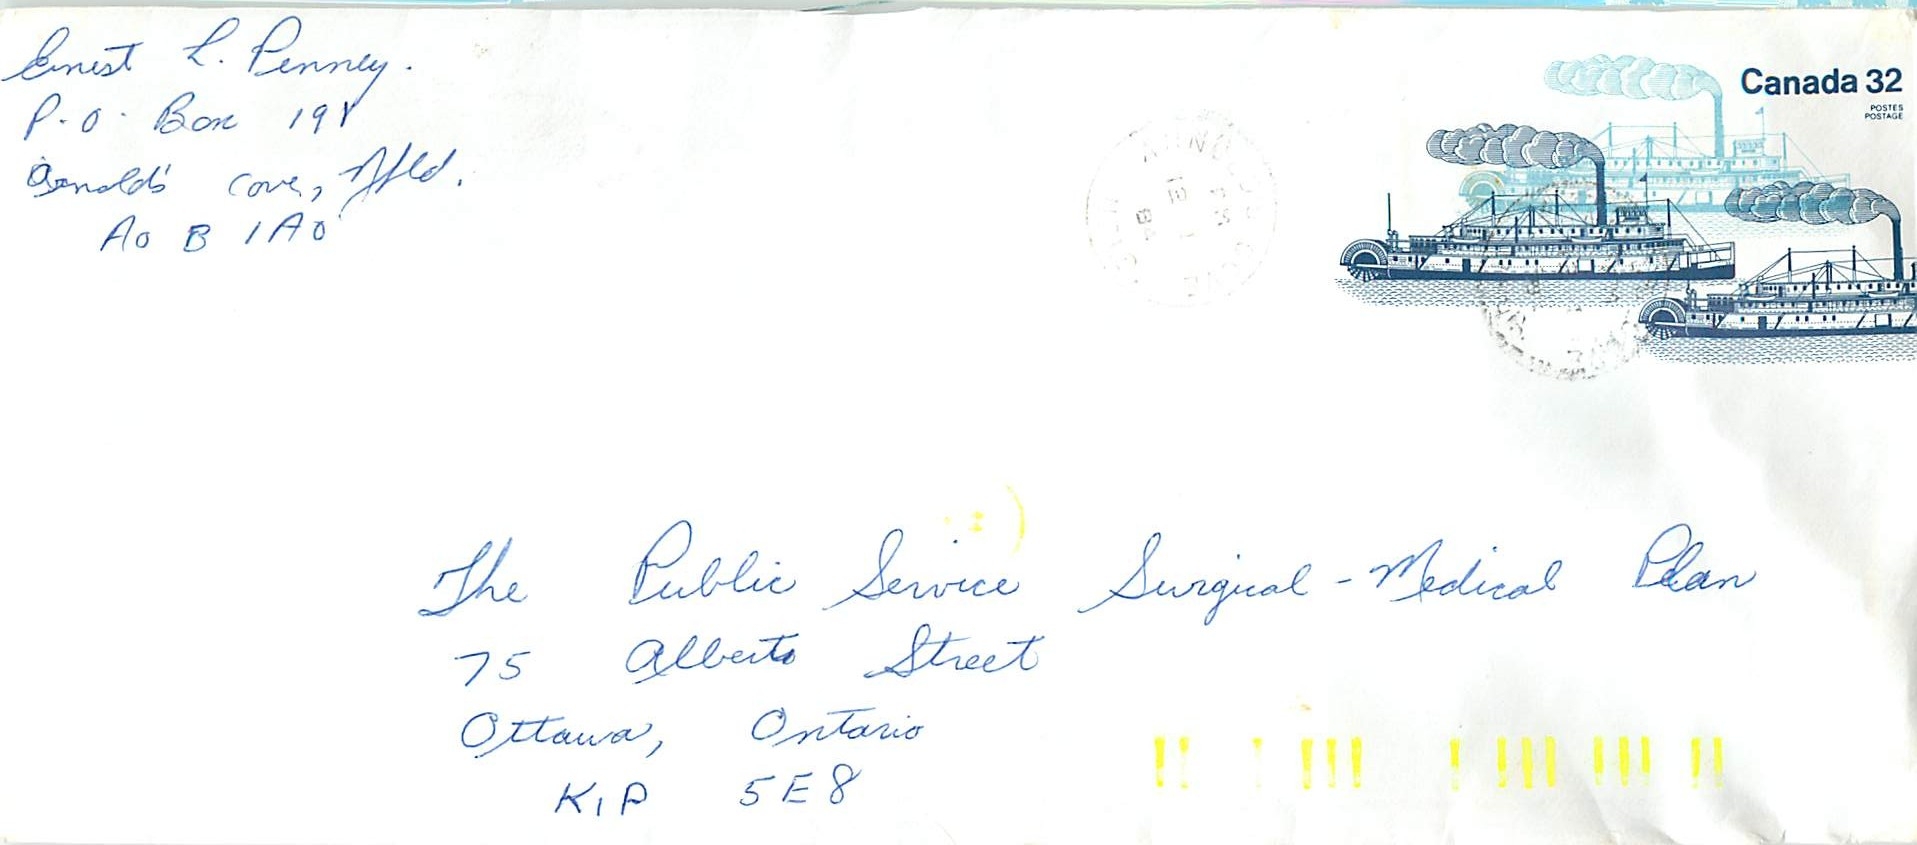 Ernest L. Penney.
P.O. Box 198
Arnold's Cove, Nfld.
A0 B 1A0
Canada 32
POSTES
POSTAGE
COVE
The Public Service Surgical-Medical Plan
75 Alberto Street
Ottawa, Ontario
K1P 5E8